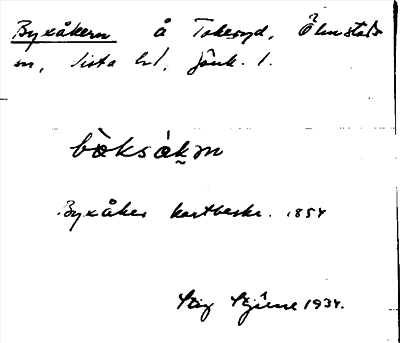 Byxåkern å Takeryd, Ölmstads
sn, Vista hd, Jönk. l.
bòksåkᵰn
Byxåker kartbeskr. 1854
Stig Stjerne 1934.